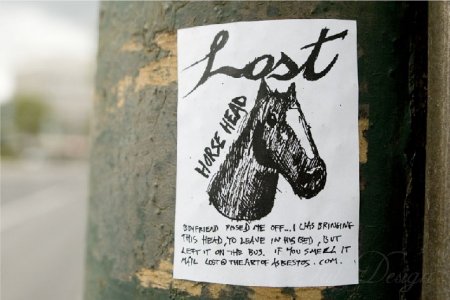 Lost
HORSE HEAD
BOYFRIEND PISSED ME OFF... I WAS BRINGING
THIS HEAD, TO LEAVE IN HIS BED, BUT
LEFT IT ON THE BUS. IF YOU SMELL IT
MAIL LOST@THEARTOFASBESTOS.COM.
Design